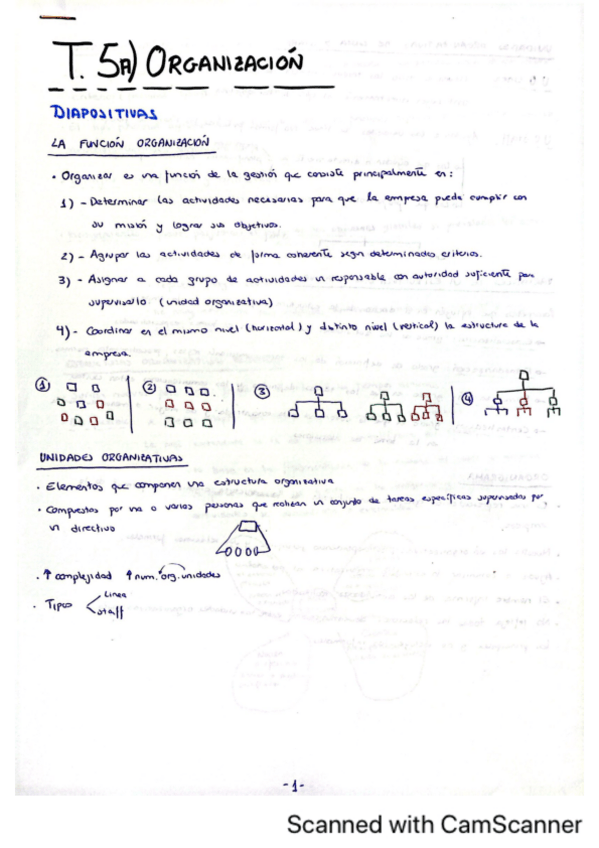 T. 5A) ORGANIZACIÓN
DIAPOSITIVAS
LA FUNCIÓN ORGANIZACIÓN
• Organizar es una función de la gestión que consiste principalmente en:
1) - Determinar las actividades necesarias para que la empresa pueda cumplir con
su misión y lograr sus objetivos.
2) - Agrupar las actividades de forma coherente segn determinados criterios.
3) - Asignar a cada grupo de actividades un responsable con autoridad suficiente para
supervisarlo (unidad organizativa)
4) - Coordinar en el mismo nivel (horizontal) y distinto nivel (vertical) la estructura de la
empresa.
1 2 3 4
UNIDADES ORGANIZATIVAS
• Elementos que componen una estructura organizativa
• Compuestos por una o varias personas que realizan un conjunto de tareas específicas supervisadas por
un directivo
• ↑ complejidad ↑ num. org. unidades
• Tipos < Linea
staff
- 1 -
Scanned with CamScanner